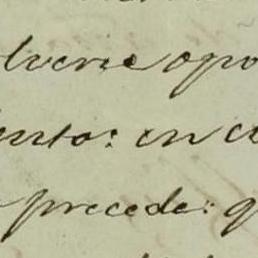 lverse opo
ento: en c
precede: q